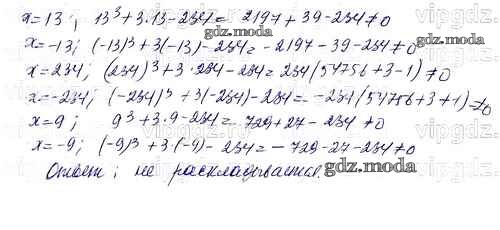 x=13; 13³+3·13-234= 2197+39-234≠0
x=-13; (-13)³+3(-13)-234=-2197-39-234≠0
x=234; (234)³+3·234-234=234(54756+3-1)≠0
x=-234; (-234)³+3(-234)-234=-234(54756+3+1)≠0
x=9; 9³+3·9-234=729+27-234≠0
x=-9; (-9)³+3·(-9)-234=-729-27-234≠0
Ответ: не раскладывается.
gdz.moda
gdz.moda
gdz.moda
gdz.moda
vipgdz
vipgdz